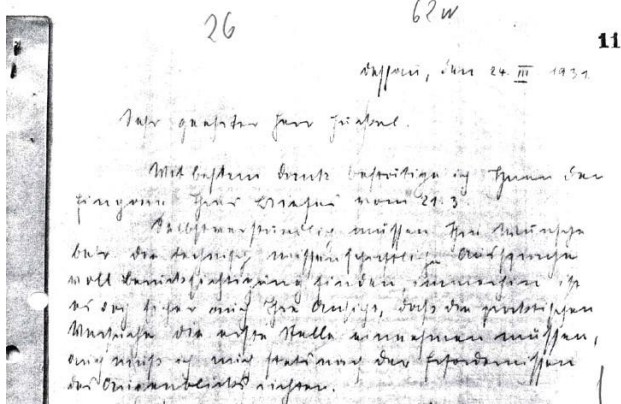 26
62w
11
Dessau, den 24. III 1931.
Sehr geehrter Herr
Mit bestem Dank bestätige ich Ihnen den
Eingang Ihres Briefes vom 21.3.
Selbstverständlich müssen Ihre Wünsche
betr. der technisch wissenschaftlichen Aussprache
voll Berücksichtigung finden, immerhin ist
es doch sicher auch Ihre Ansicht, daß die praktischen
Versuche die erste Stelle einnehmen müssen,
auch muß ich mich stets nach den Erfordernissen
des Augenblicks richten.